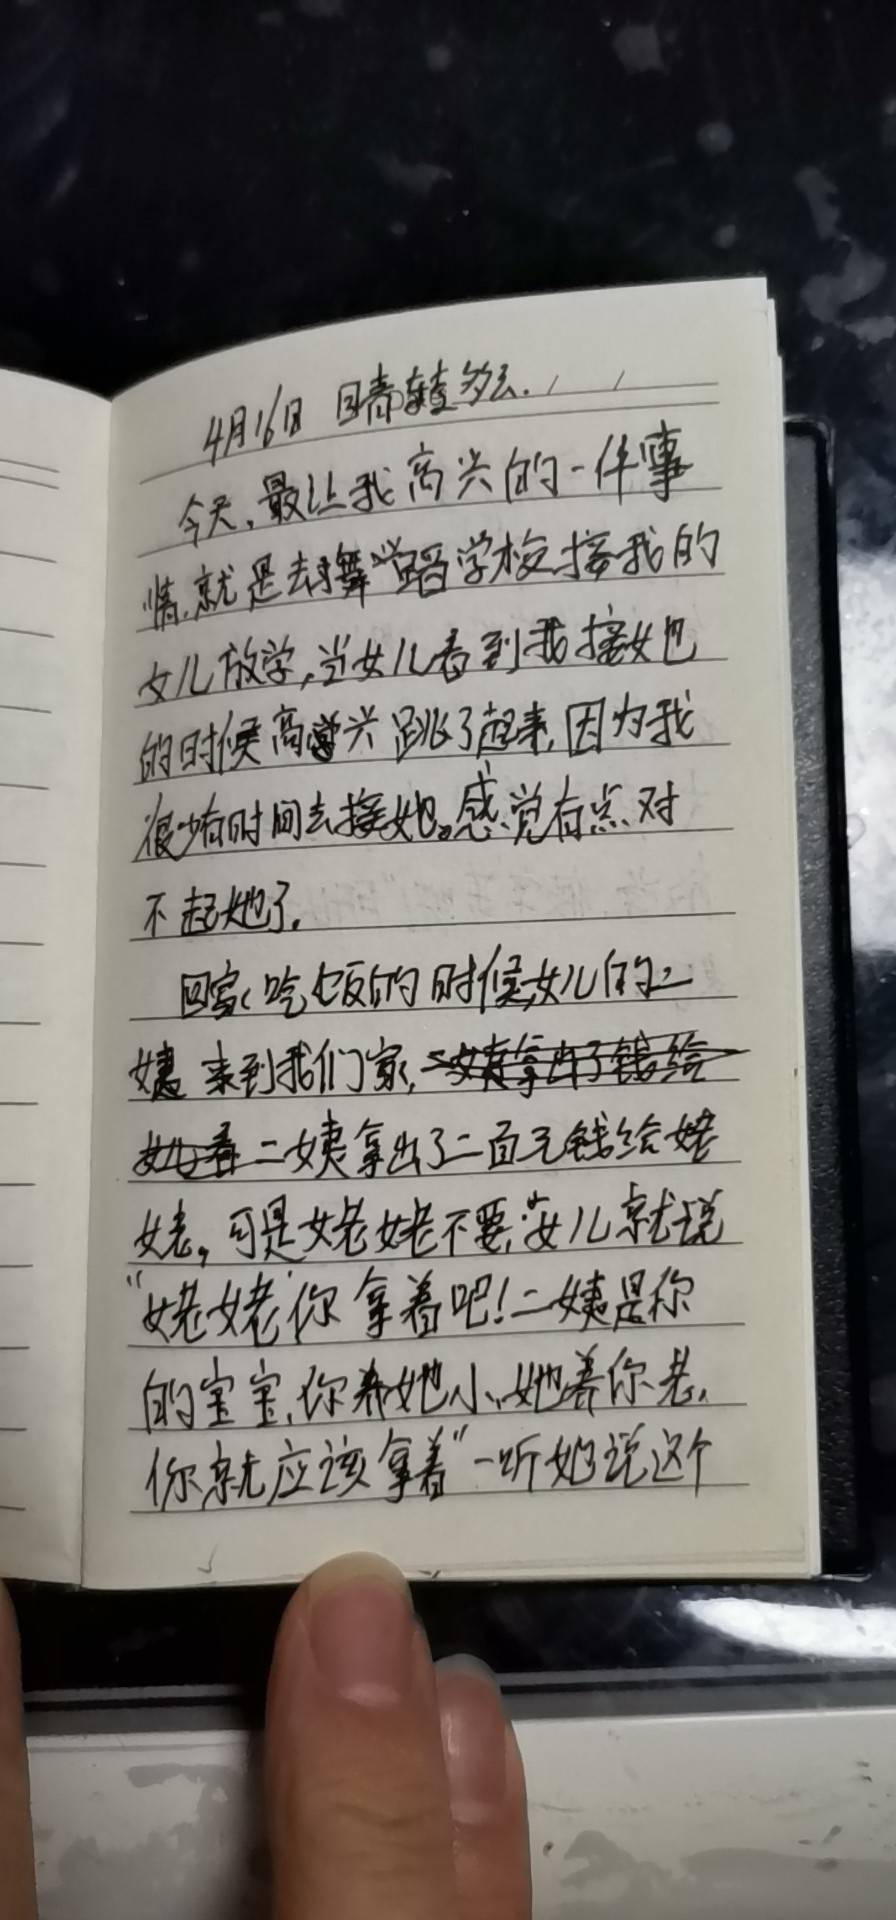 4月16日 晴转多云.
今天,最让我高兴的一件事
情,就是去舞蹈学校接我的
女儿放学,当女儿看到我接她
的时候高兴跳了起来,因为我
很少有时间去接她。感觉有点对
不起她了.
回家吃饭的时候,女儿的二
姨来到我们家,二姨拿出了钱给
二姨拿出了二百元钱给姥
姥,可是姥姥不要,女儿就说
"姥姥"你拿着吧!二姨是你
的宝宝,你养她小,她养你老,
你就应该拿着"一听她说这个